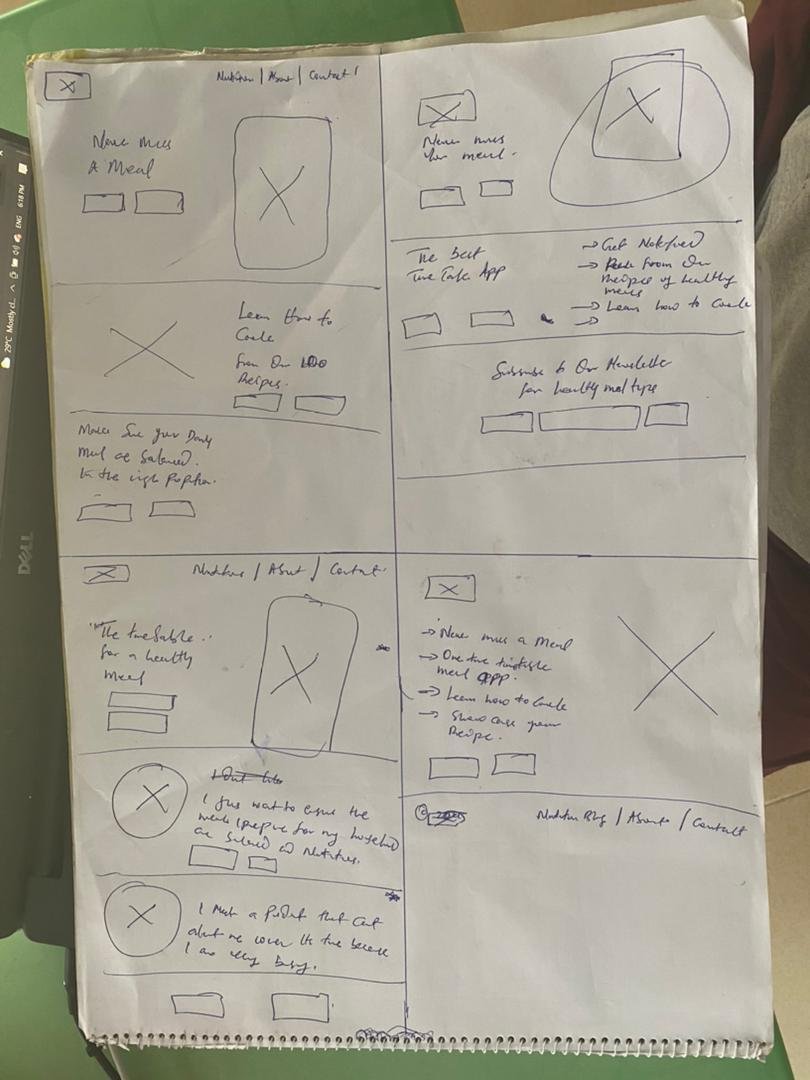 Nutrition | About | Contact |
Never miss
A Meal
Learn How to
Cook
from Our 100
Recipes.
Make Sure your Daily
meal are balanced.
In the right
Never miss
your meal.
The Best
Time Table App
→ Get Notified
→ from Our
Recipe of healthy
meals
→ Learn how to Cook
→
to Our Newsletter
for healthy meal
| About | Contact
"The timetable
for a healthy
meal
I just want to ensure the
meals I prepare for my household
are balanced and
I a that
me because
I am very busy.
→ Never miss a Meal
→ One time timetable
meal app.
→ Learn how to Cook
→ Showcase your
Recipe.
©
Nutrition Blog | About | Contact
DELL
29°C Mostly d...
ENG
6:18 PM